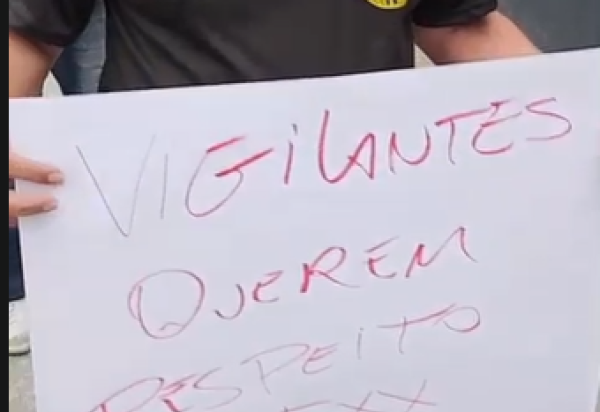 VIGILANTES
QUEREM
RESPEITO